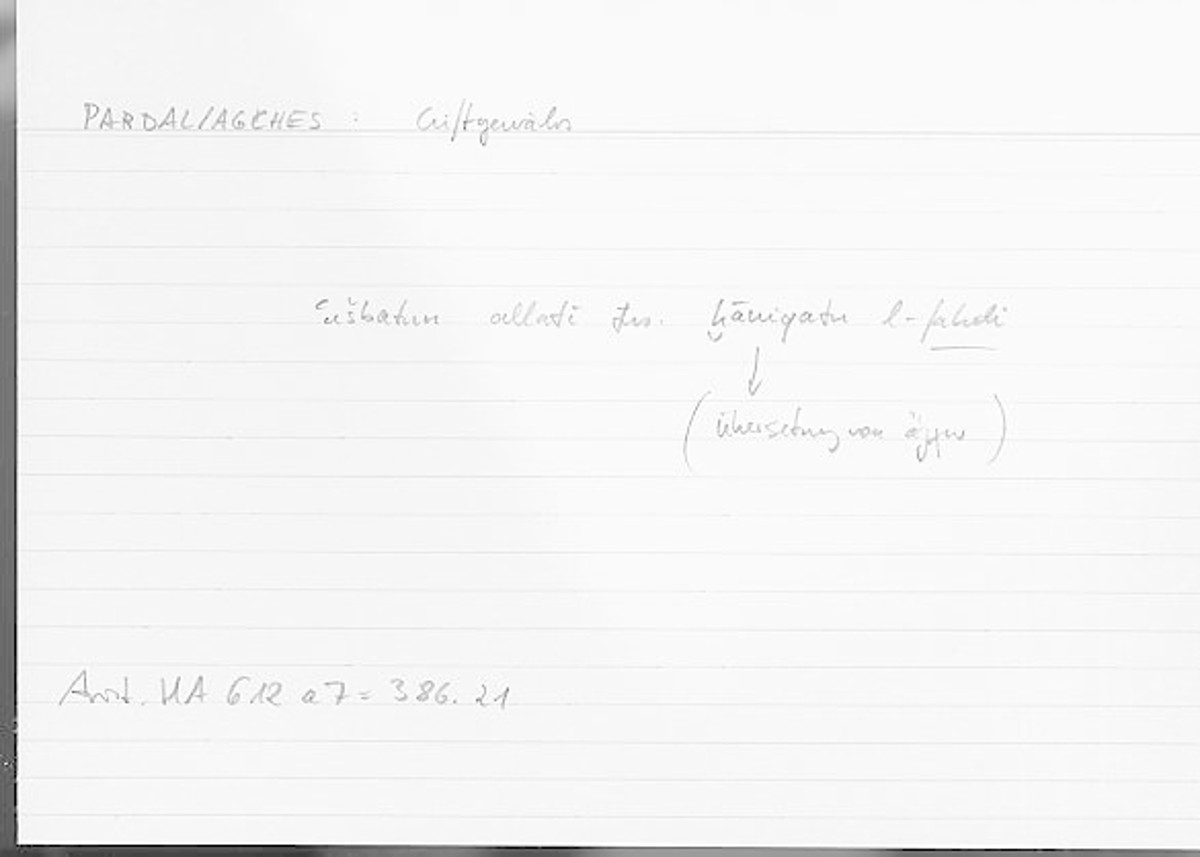 PARDAL/AGCHES : Giftgewächs
ʿušbatun allatī tus. ḫāniqatu l-fahdi
(Übersetzung von ἄγχω)
Arist. HA 612 a 7 = 386.21